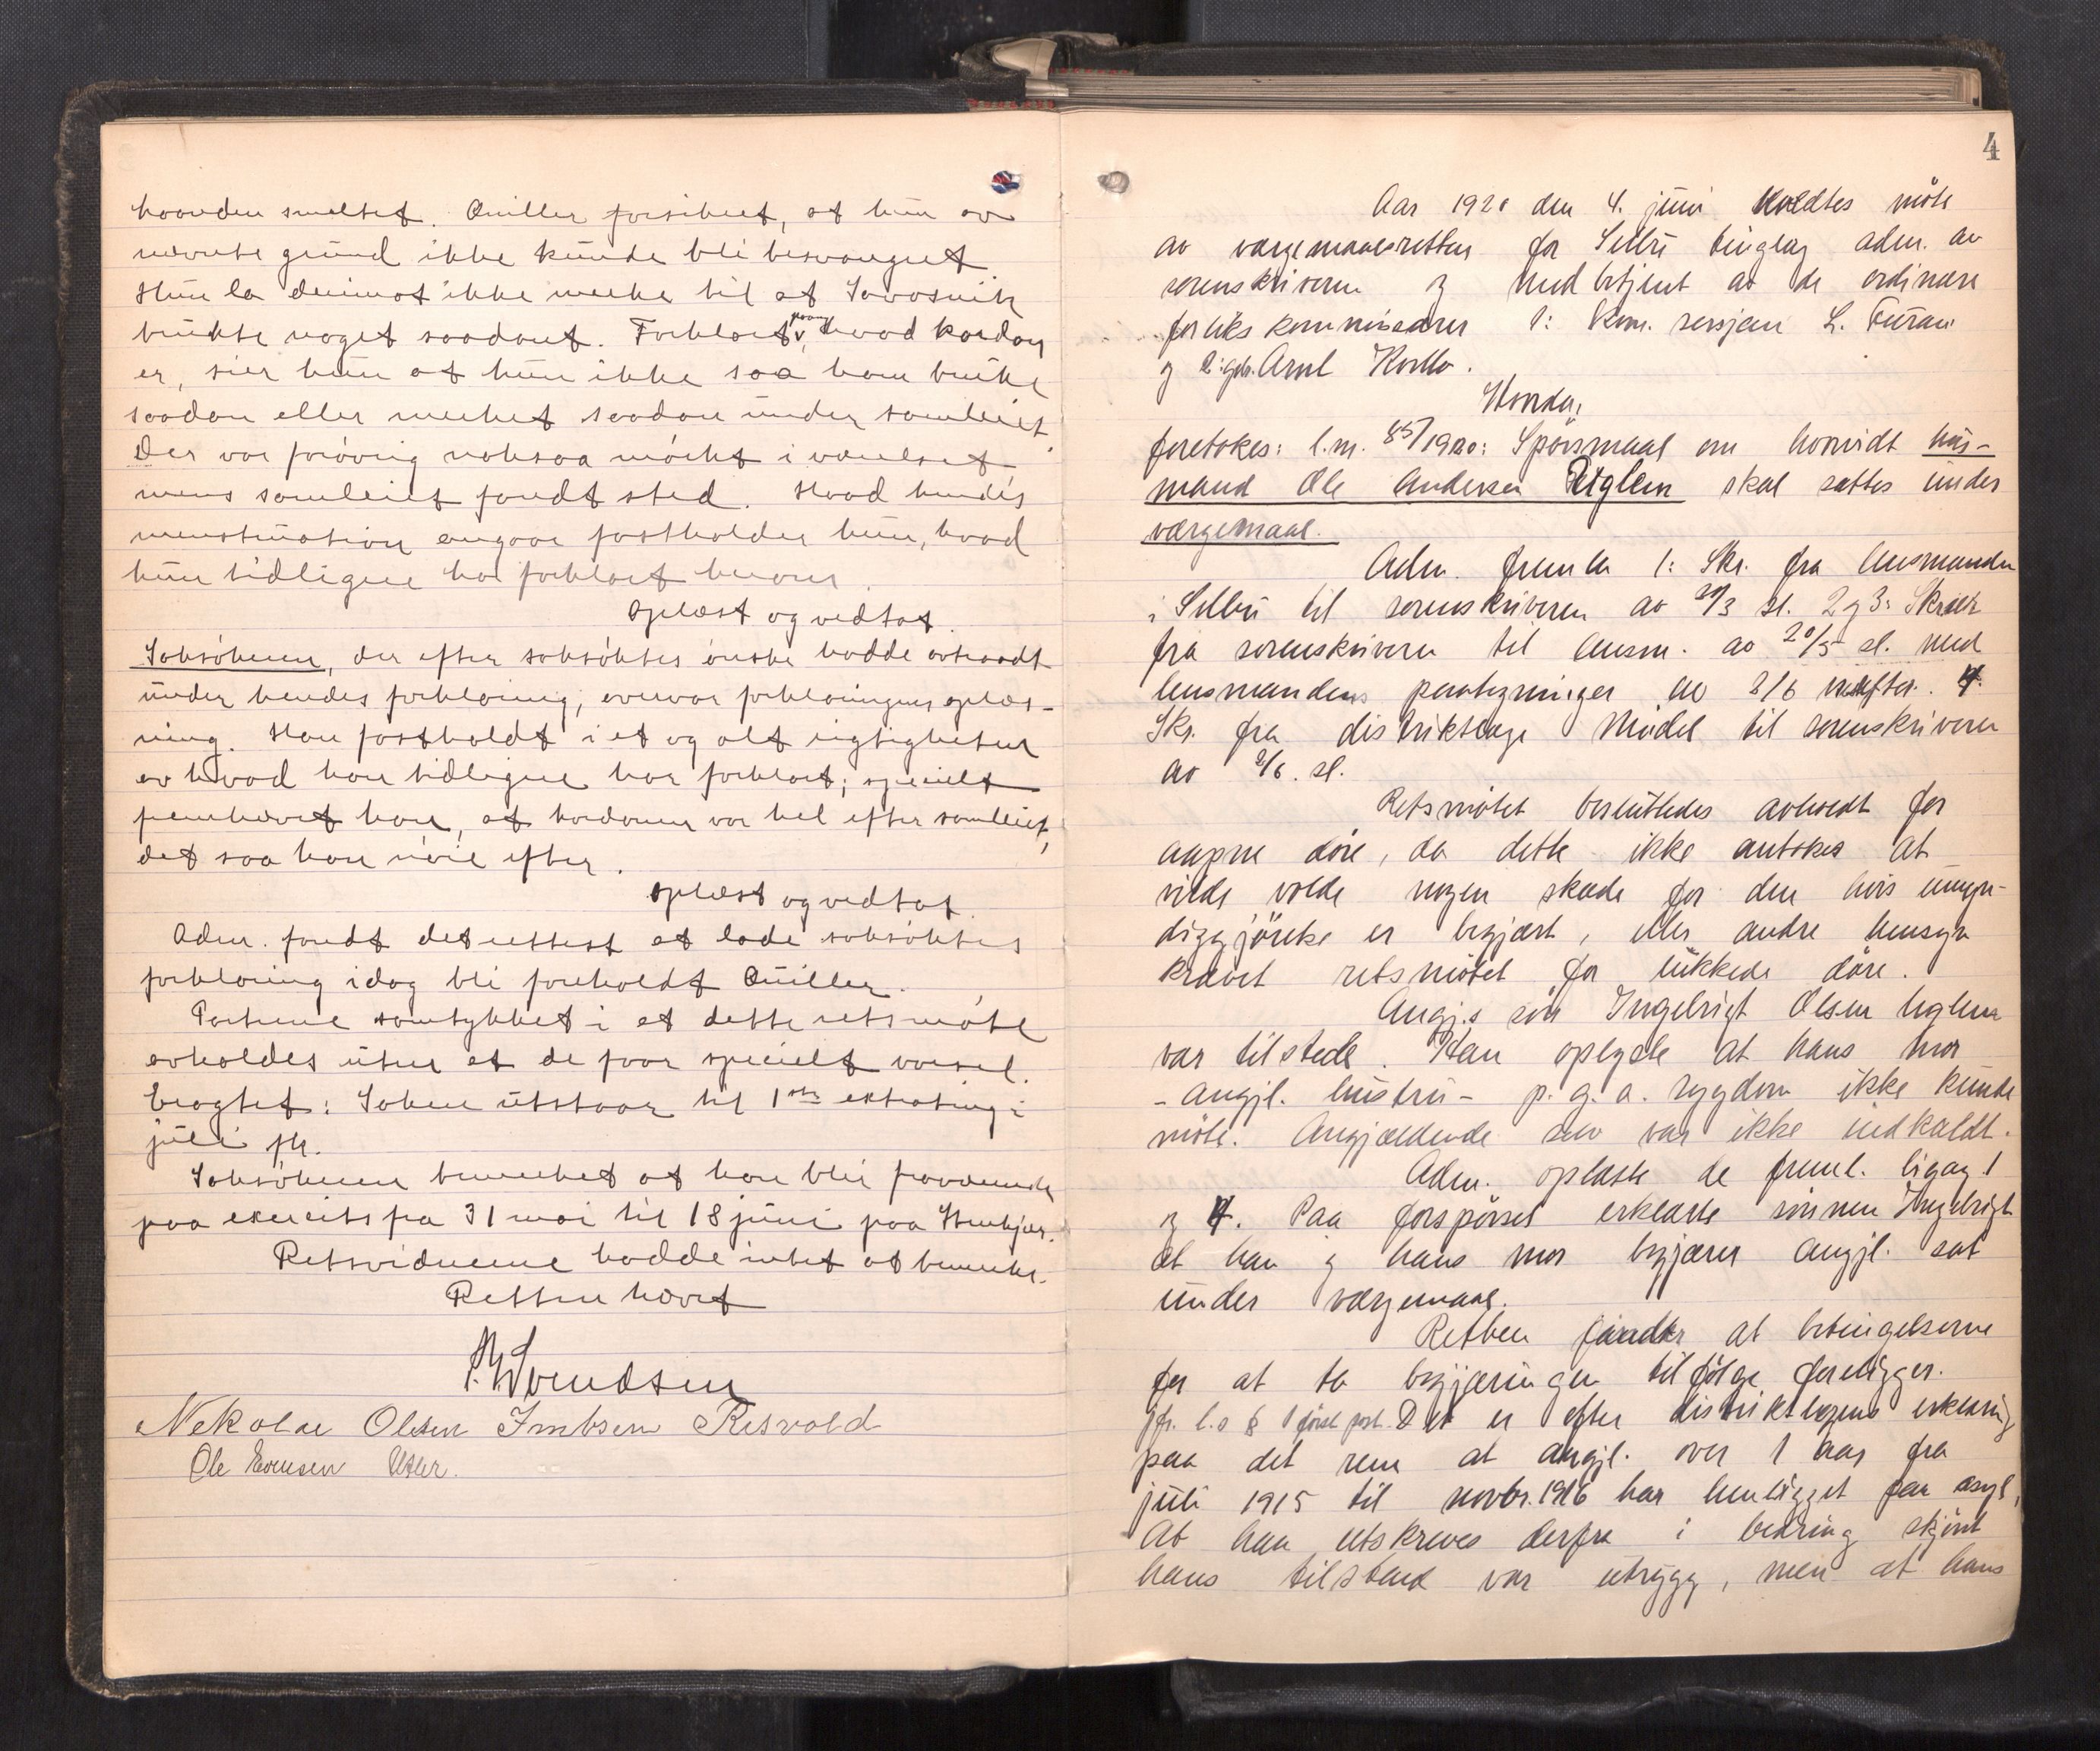 haanden smeltet. Quiller forsikret, at hun av
nævnte grund ikke kunde bli besvangret
Hun la derimot ikke merke til at Savosnik
brukte noget saadant. Forklaret paany, hvad kondom
er, sier hun at hun ikke saa ham bruke
saadan eller merket saadan under samleiet.
Der var forøvrig noksaa mørkt i værelset
mens samleiet fandt sted. Hvad hendes
menstruation angaar fastholder hun, hvad
hun tidligere har forklart herom.
Oplæst og vedtat.
Saksøkeren, der efter saksøktes ønske hadde avtraadt
under hendes forklaring, overvar forklaringens oplæs-
ning. Han fastholdt i et og alt rigtigheten
av hvad han tidligere har forklart; specielt
fremhævet han, at kondomen var hel efter samleiet,
det saa han nøie efter.
Oplæst og vedtat.
Adm. fandt det rettest at lade saksøktes
forklaring idag bli foreholdt Quiller.
Parterne samtykket i at dette retsmøte
avholdes uten at de faar specielt varsel.
Eragtet: Saken utstaar til 1ste ekstrating i
juli fk.
Saksøkeren bemerket at han blir fraværende
paa exercits fra 31 mai til 18 juni paa Stenkjær.
Retsvidnerne hadde intet at bemerke.
Retten hævet
Svendsen
Nekolai Olsen Risvold
Ole Evensen
4
Aar 1920 den 4. juni holdtes møte
av værgemaalsretten for Selbu tinglag adm. av
sorenskriveren og medbetjent av de ordinære
forlikskommissærer 1: kom. sersjan L. Furan
og 2: gdr. Arnt Kvello.
Hvorda,
foretokes: l.nr. 85/1920: Spørsmaal om hvorvidt hus-
mand Ole Andersen Uglem skal sættes under
værgemaal.
Adm. fremla 1: Skr. fra lensmanden
i Selbu til sorenskriveren av /3 sl. 2 og 3: Skriv
fra sorenskriveren til lensm. av 20/5 sl. med
lensmandens paategninger av 2/6 næstefter. 4.
Skr. fra distriktslæge Mødel til sorenskriveren
av 2/6. sl.
Retsmøtet besluttedes avholdt for
aapne døre, da dette ikke antokes at
vilde volde nogen skade for den hvis umyn-
diggjørelse er begjært, eller andre hensyn
krævet retsmøtet for lukkede døre.
Angj.s søn Ingebrigt Olsen Uglem
var tilstede. Han oplyste at hans mor
- angjl. hustru - p. g. a. sygdom ikke kunde
møte. Angjældende selv var ikke indkaldt.
Adm. oplæste de freml. bilag 1
og 4. Paa forspørsel erklærte sønnen Ingebrigt
at han og hans mor begjærer angjl. sat
under værgemaal.
Retten finder at betingelserne
for at ta begjæringen tilfølge foreligger.
jfr. l.s § 1 første post. Det er efter distriktlægens erklæring
paa det rene at angjl. over 1 aar fra
juli 1915 til novbr. 1916 har henligget paa asyl,
At han utskreves derfra i bedring skjønt
hans tilstand var utrygg, men at hans